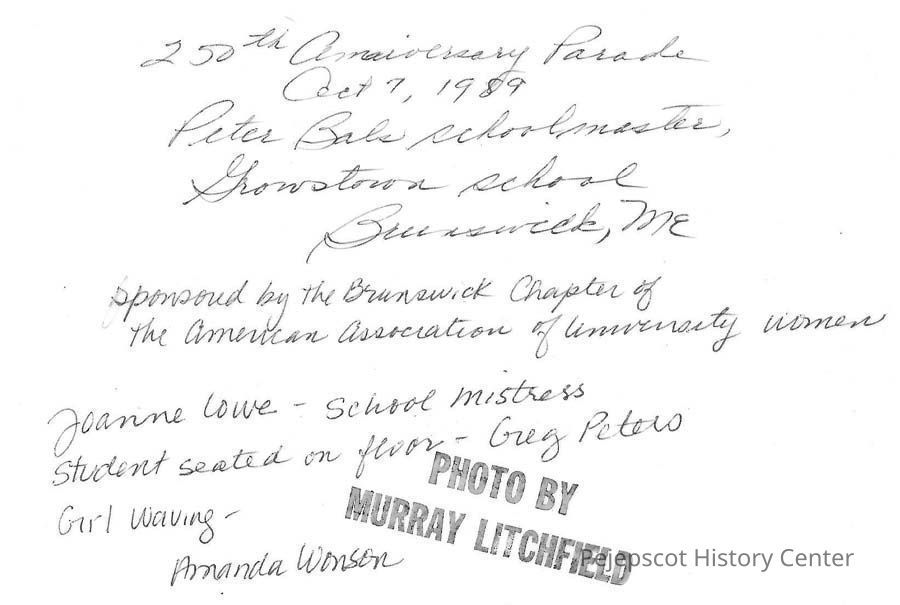 250th Anniversary Parade
Oct 7, 1989
Peter Bals schoolmaster,
Growstown school
Brunswick, ME
Sponsored by the Brunswick Chapter of
the American Association of University women
Joanne Lowe - School Mistress
Student seated on floor - Greg Peters
Girl Waving -
Amanda Wonson
PHOTO BY
MURRAY LITCHFIELD
Pejepscot History Center